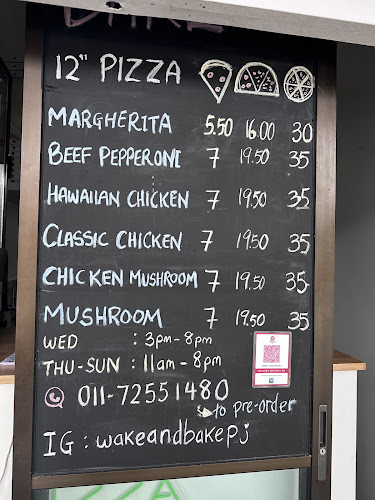 12" PIZZA
MARGHERITA 5.50 16.00 30
BEEF PEPPERONI 7 19.50 35
HAWAIIAN CHICKEN 7 19.50 35
CLASSIC CHICKEN 7 19.50 35
CHICKEN MUSHROOM 7 19.50 35
MUSHROOM 7 19.50 35
WED : 3pm - 8pm
THU - SUN : 11am - 8pm
011-72551480
to pre-order
IG : wakeandbakepj